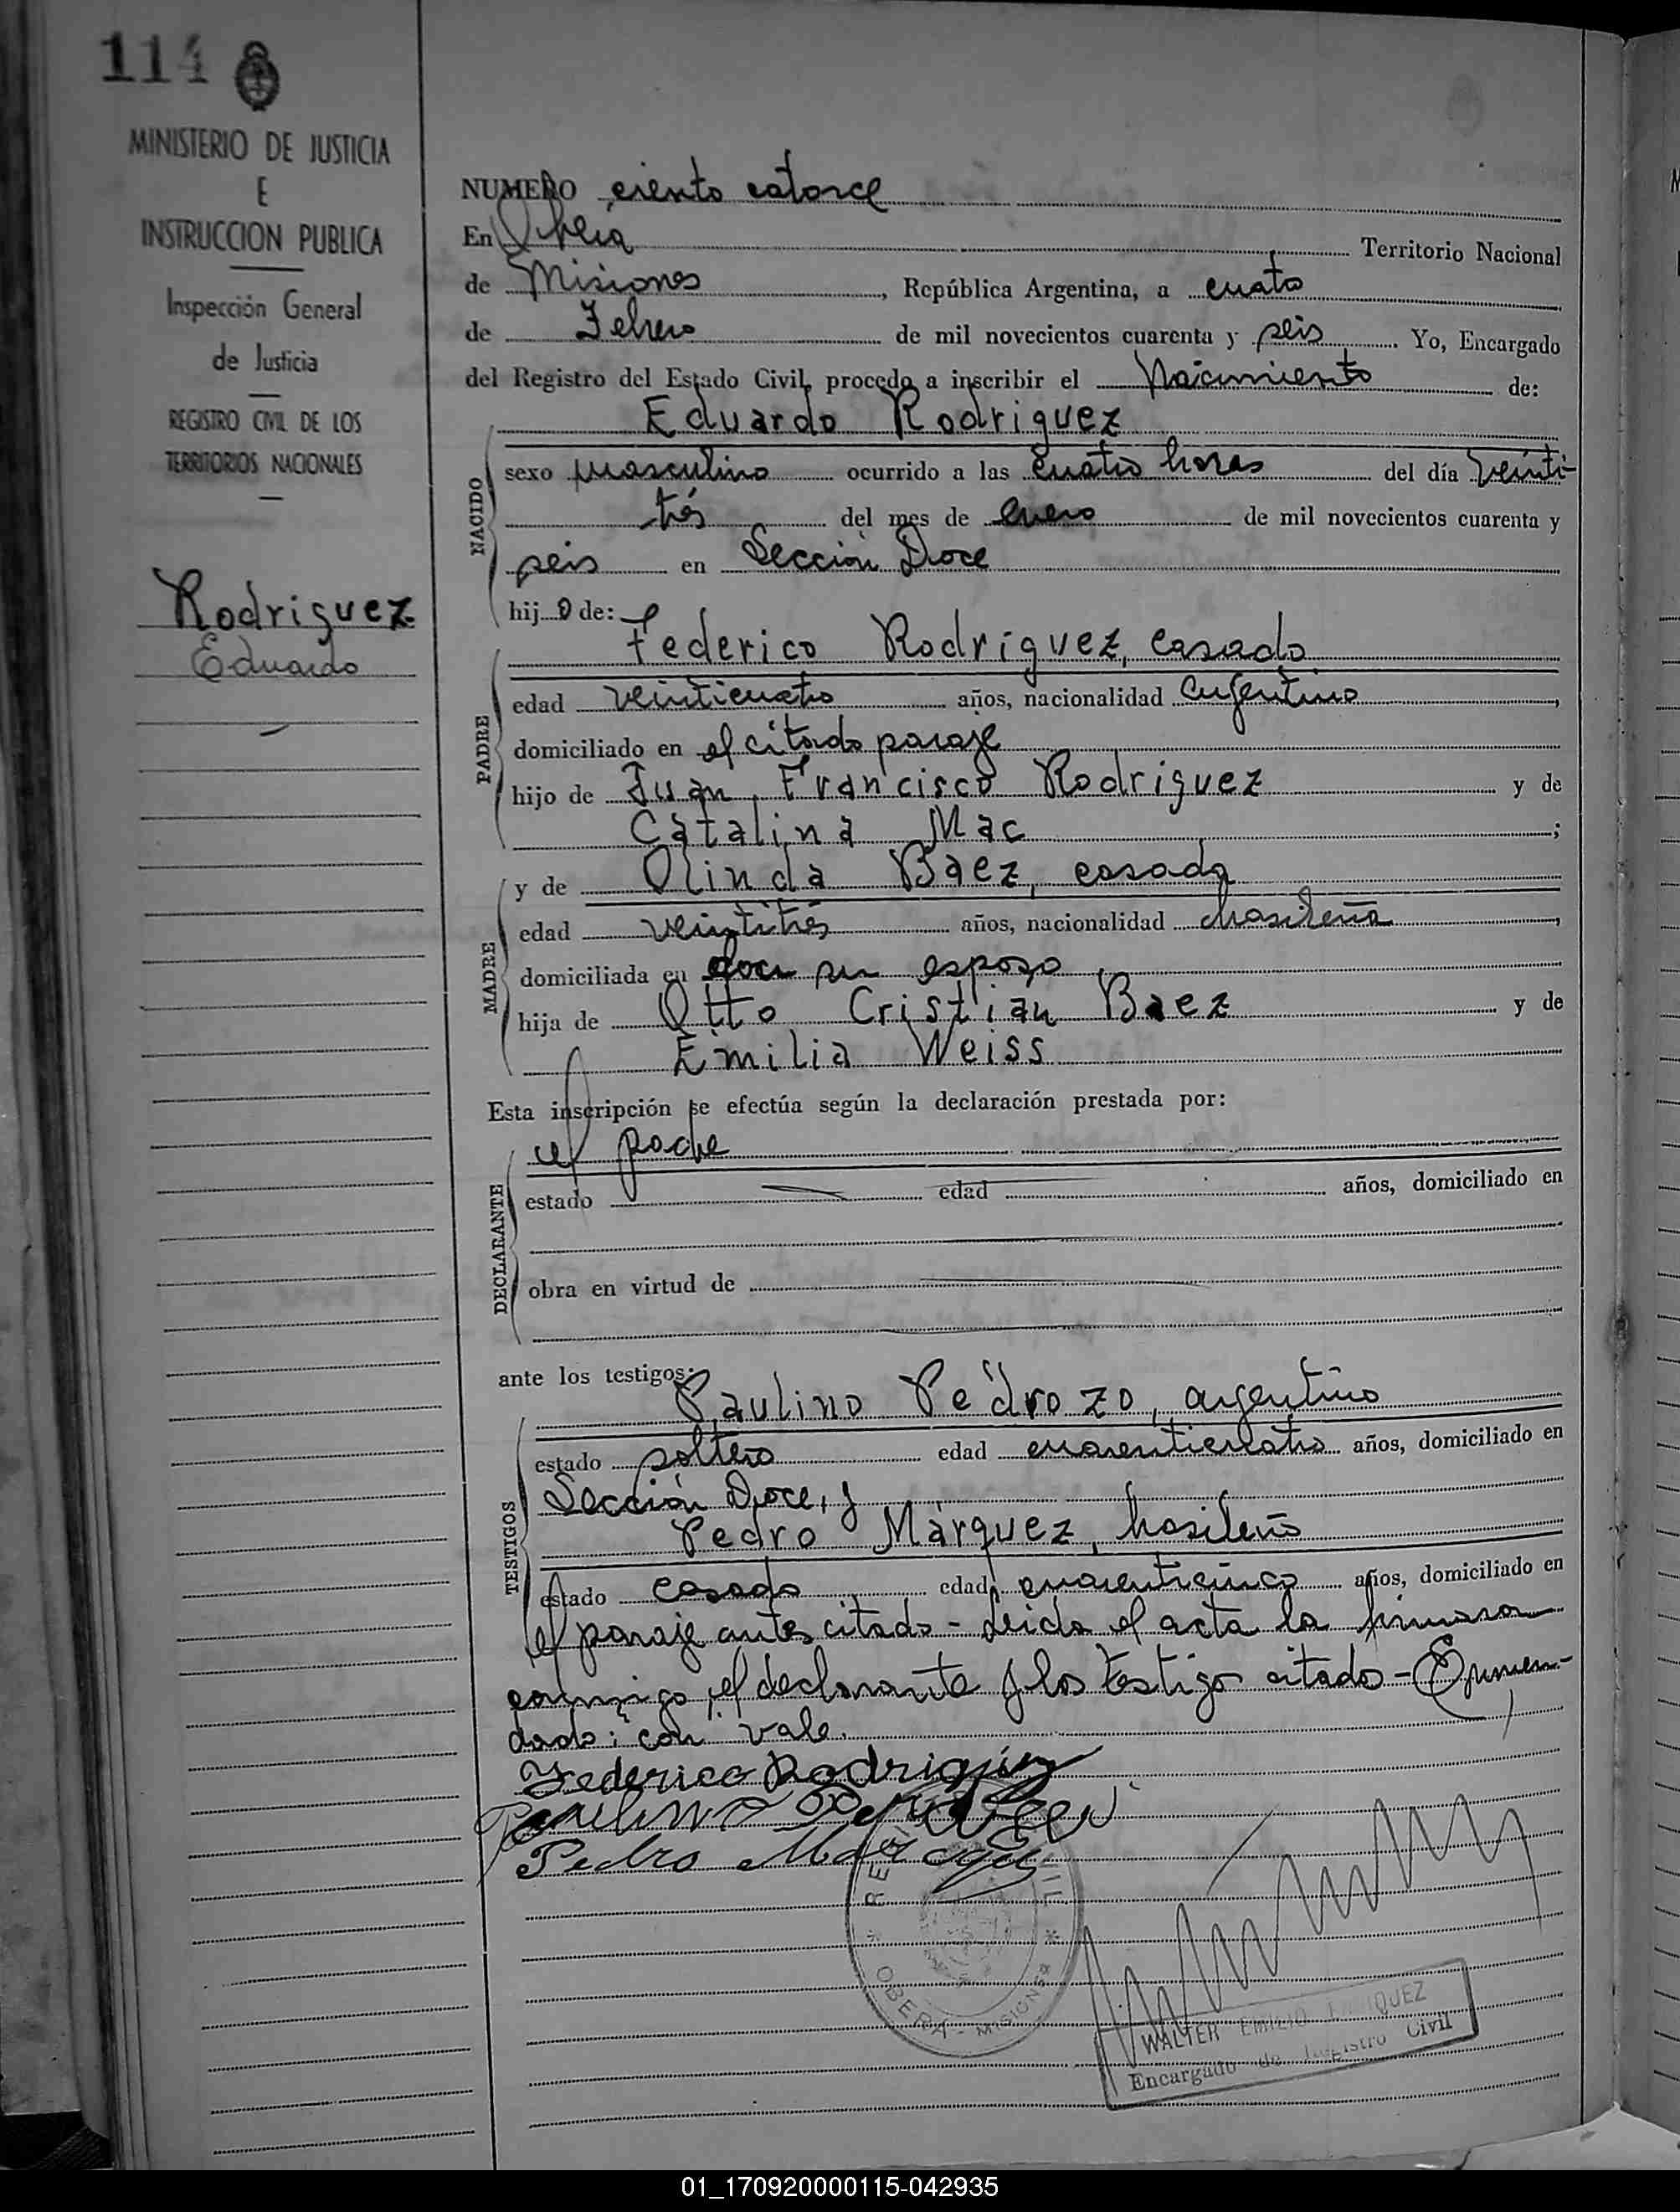 114
MINISTERIO DE JUSTICIA
E
INSTRUCCION PUBLICA
Inspección General
de Justicia
REGISTRO CIVIL DE LOS
TERRITORIOS NACIONALES
Rodriguez
Eduardo
NUMERO ciento catorce
En Oberá Territorio Nacional
de Misiones, República Argentina, a cuatro
de Febrero de mil novecientos cuarenta y seis. Yo, Encargado
del Registro del Estado Civil, procedo a inscribir el Nacimiento de:
Eduardo Rodriguez
NACIDO
sexo masculino ocurrido a las cuatro horas del día veinti-
trés del mes de enero de mil novecientos cuarenta y
seis en Sección Doce
hijo de:
Federico Rodriguez, casado
PADRE
edad veinticuatro años, nacionalidad argentino,
domiciliado en el citado paraje
hijo de Juan Francisco Rodriguez y de
Catalina Mac;
MADRE
y de Olinda Baez, casada
edad veintitrés años, nacionalidad brasileña,
domiciliada en con su esposo
hija de Otto Cristian Baez y de
Emilia Weiss
Esta inscripción se efectúa según la declaración prestada por:
DECLARANTE
el padre
estado edad años, domiciliado en
obra en virtud de
ante los testigos:
TESTIGOS
Paulino Pedrozo, argentino
estado soltero edad cuarenticuatro años, domiciliado en
Sección Doce, y
Pedro Márquez, brasileño
estado casado edad cuarenticinco años, domiciliado en
el paraje antes citado - Leida el acta la firmaron
conmigo, el declarante y los testigo citado - Enmen-
dado: "con" vale.
Federico Rodriguez
Paulino
Pedro Marquez
REG CIVIL
* OBERA - MISIONES *
WALTER EMILIO ENRIQUEZ
Encargado de Registro Civil
01_170920000115-042935